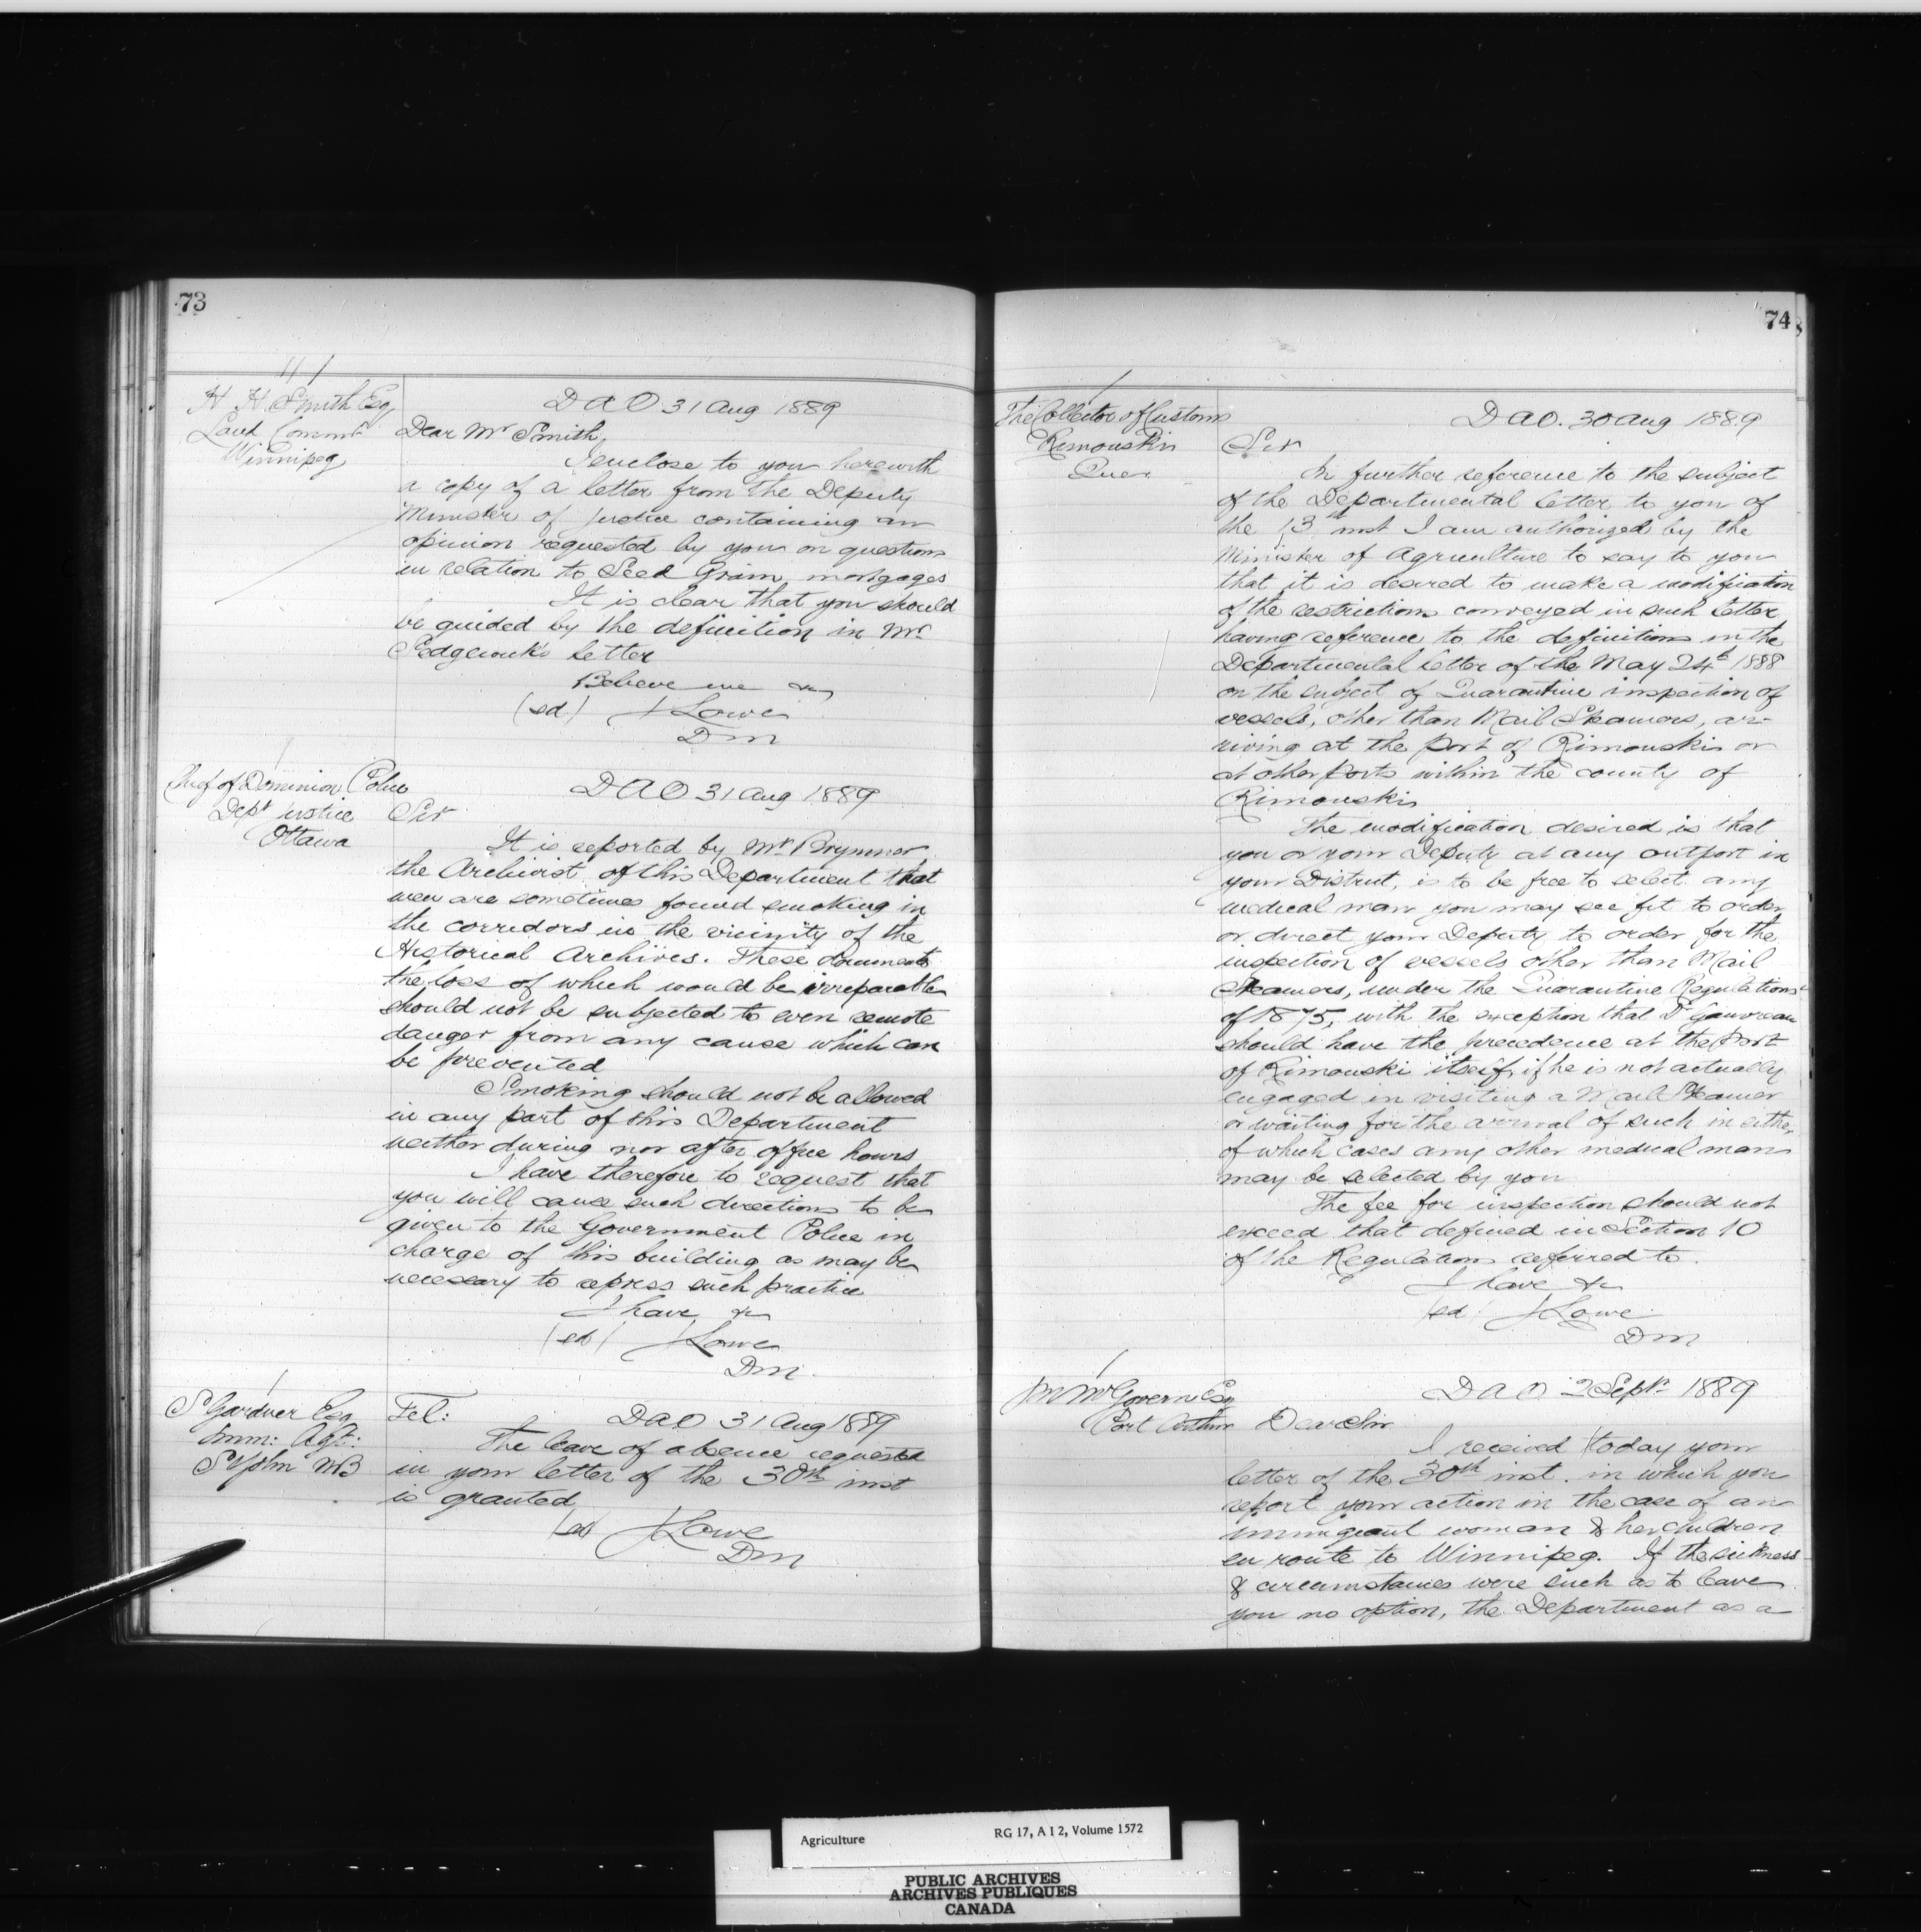 73
H H Smith Esq
Land Commr
Winnipeg
D A O 31 Aug 1889
Dear Mr Smith,
I enclose to you herewith
a copy of a letter from the Deputy
Minister of Justice containing an
opinion requested by you on questions
in relation to Seed Grain mortgages
It is clear that you should
be guided by the definition in Mr
Sedgewick's letter
Believe me &c
(sd) J Lowe
DM
Chief of Dominion Police
Dept Justice
Ottawa
D A O 31 Aug 1889
Sir
It is reported by Mr Brymner
the Archivist of this Department that
men are sometimes found smoking in
the corridors in the vicinity of the
Historical Archives. These documents
the loss of which would be irreparable
should not be subjected to even remote
danger from any cause which can
be prevented
Smoking should not be allowed
in any part of this Department
neither during nor after office hours
I have therefore to request that
you will cause such directions to be
given to the Government Police in
charge of this building as may be
necessary to repress such practice
I have &c
(sd) J Lowe
DM
S Gardner Esq
Imm: Agt:
St John NB
Tel: D A O 31 Aug 1889
The leave of absence requested
in your letter of the 30th inst
is granted
(sd) J Lowe
DM
74
The Collector of Customs
Rimouski
Quec
D A O. 30 Aug 1889
Sir
In further reference to the subject
of the Departmental letter to you of
the 13th inst I am authorized by the
Minister of Agriculture to say to you
that it is desired to make a modification
of the restrictions conveyed in such letter
having reference to the definitions in the
Departmental letter of the May 24th 1888
on the subject of Quarantine inspection of
vessels, other than Mail Steamers, ar-
riving at the Port of Rimouski or
at other ports within the county of
Rimouski
The modification desired is that
you or your Deputy at any outport in
your District, is to be free to select any
medical man you may see fit to order
or direct your Deputy to order for the
inspection of vessels other than Mail
Steamers, under the Quarantine Regulations
of 1875, with the exception that Dr Gauvreau
should have the precedence at the Port
of Rimouski itself, if he is not actually
engaged in visiting a Mail Steamer
or waiting for the arrival of such in either
of which cases any other medical man
may be selected by you
The fee for inspection should not
exceed that defined in Section 10
of the Regulations referred to.
I have &c
(sd) J Lowe
DM
McGovern Esq
Port Arthur
D A O 2 Sept 1889
Dear Sir
I received today your
letter of the 30th inst. in which you
report your action in the case of an
immigrant woman & her children
en route to Winnipeg. If the sickness
& circumstances were such as to leave
you no option, the Department as a
Agriculture
RG 17, A I 2, Volume 1572
PUBLIC ARCHIVES
ARCHIVES PUBLIQUES
CANADA